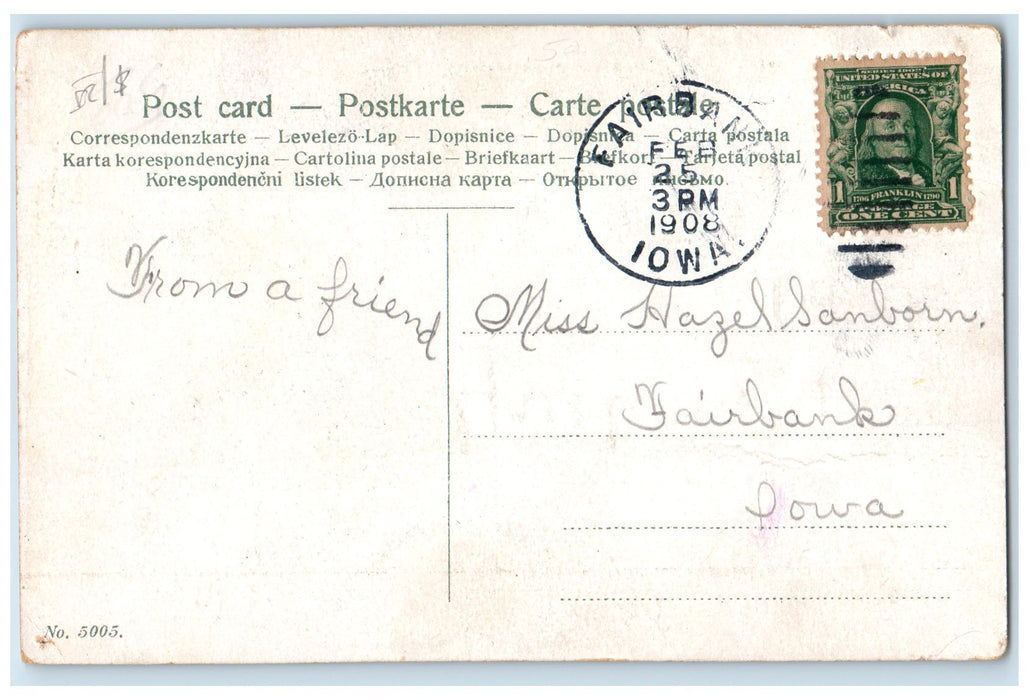 Post card — Postkarte — Carte postale
Correspondenzkarte — Levelező-Lap — Dopisnice — Dopisnica — Carta postala
Karta korespondencyjna — Cartolina postale — Briefkaart — Brefkort — Tarjeta postal
Korespondenčni listek — Дописна карта — Открытое письмо.
FAIRBANK
FEB
25
3 PM
1908
IOWA.
SERIES 1902
UNITED STATES OF
AMERICA
1706 FRANKLIN 1790
1 1
ONE CENT
From a friend
Miss Hazel Sanborn.
Fairbank
Iowa
No. 5005.